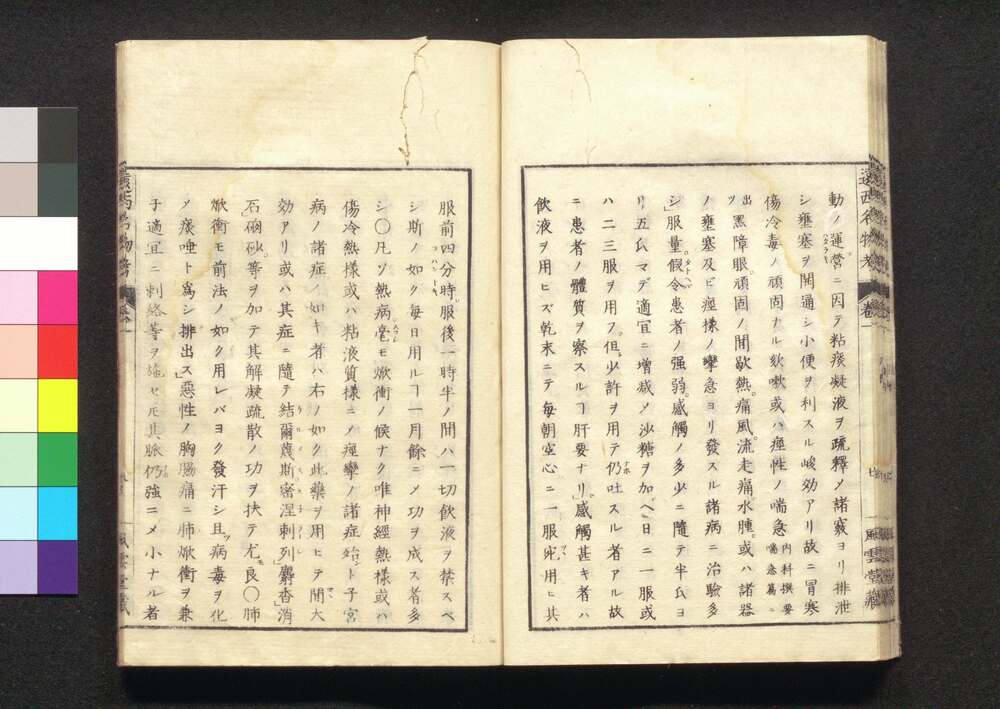 動ノ運営ニ因テ粘痰凝液ヲ疏釋メ諸竅ヨリ排泄
シ壅塞ヲ開通シ小便ヲ利スル峻効アリ故ニ冒寒
傷冷毒ノ頑固ナル欬嗽或ハ痙性ノ喘急 内科撰要喘急篇ニ
出ツ 黒障眼頑固ノ間歇熱痛風流走痛水腫或ハ諸器
ノ壅塞及ビ痙様ノ攣急ヨリ發スル諸病ニ治驗多
シ」服量假令患者ノ强弱感觸ノ多少ニ隨テ半氏ヨ
リ五氏マデ適宜ニ増減メ沙糖ヲ加ヘ日ニ一服或
ハ二三服ヲ用フ但少許ヲ用テ仍吐スル者アル故
ニ患者ノ體質ヲ察スルヿ肝要ナリ」感觸甚キ者ハ
飲液ヲ用ヒズ乾末ニテ毎朝空心ニ一服兠用ヒ其
卷一
風雲堂藏
服前四分時服後一時半ノ間ハ一切飲液ヲ禁スベ
シ斯ノ如ク毎日用ルヿ一月餘ニメ功ヲ成ス者多
シ〇凡ソ熱病毫モ焮衝ノ候ナク唯神經熱様或ハ
傷冷熱様或ハ粘液質様ニメ痙攣ノ諸症始ント子宮
病ノ諸症ノ如キ者ハ右ノ如ク此藥ヲ用ヒテ間大
効アリ或ハ其症ニ隨テ結爾蔑斯密涅剌列」麝香消
石硇砂等ヲ加テ其解凝疏散ノ功ヲ扶テ尤良〇肺
焮衝モ前法ノ如ク用レバヨク發汗シ且ツ病毒ヲ化
メ痰唾ト爲シ排出ス」惡性ノ胸腸痛ニ肺焮衝ヲ兼
子適宜ニ刺絡等ヲ施セ𪜈其脈仍強ニメ小ナル者